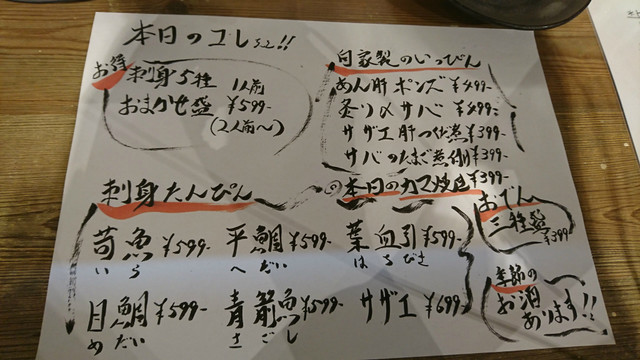 本日のコレ!!
お得
刺身5種 1人前
おまかせ盛 ¥599-
(2人前〜)
自家製のいっぴん
あん肝ポンズ ¥499-
炙り〆サバ ¥499-
サザエ肝つけ煮 ¥399-
サバのたまご煮付 ¥399-
本日のカマ焼き ¥399-
刺身たんぴん
苛魚 ¥599- 平鯛 ¥599- 葉血引 ¥599-
いら へだい はちびき
目鯛 ¥599- 青箭魚 ¥599- サザエ ¥699-
めだい さごし
おでん
三種盛
¥399
季節の
お酒
あります!!